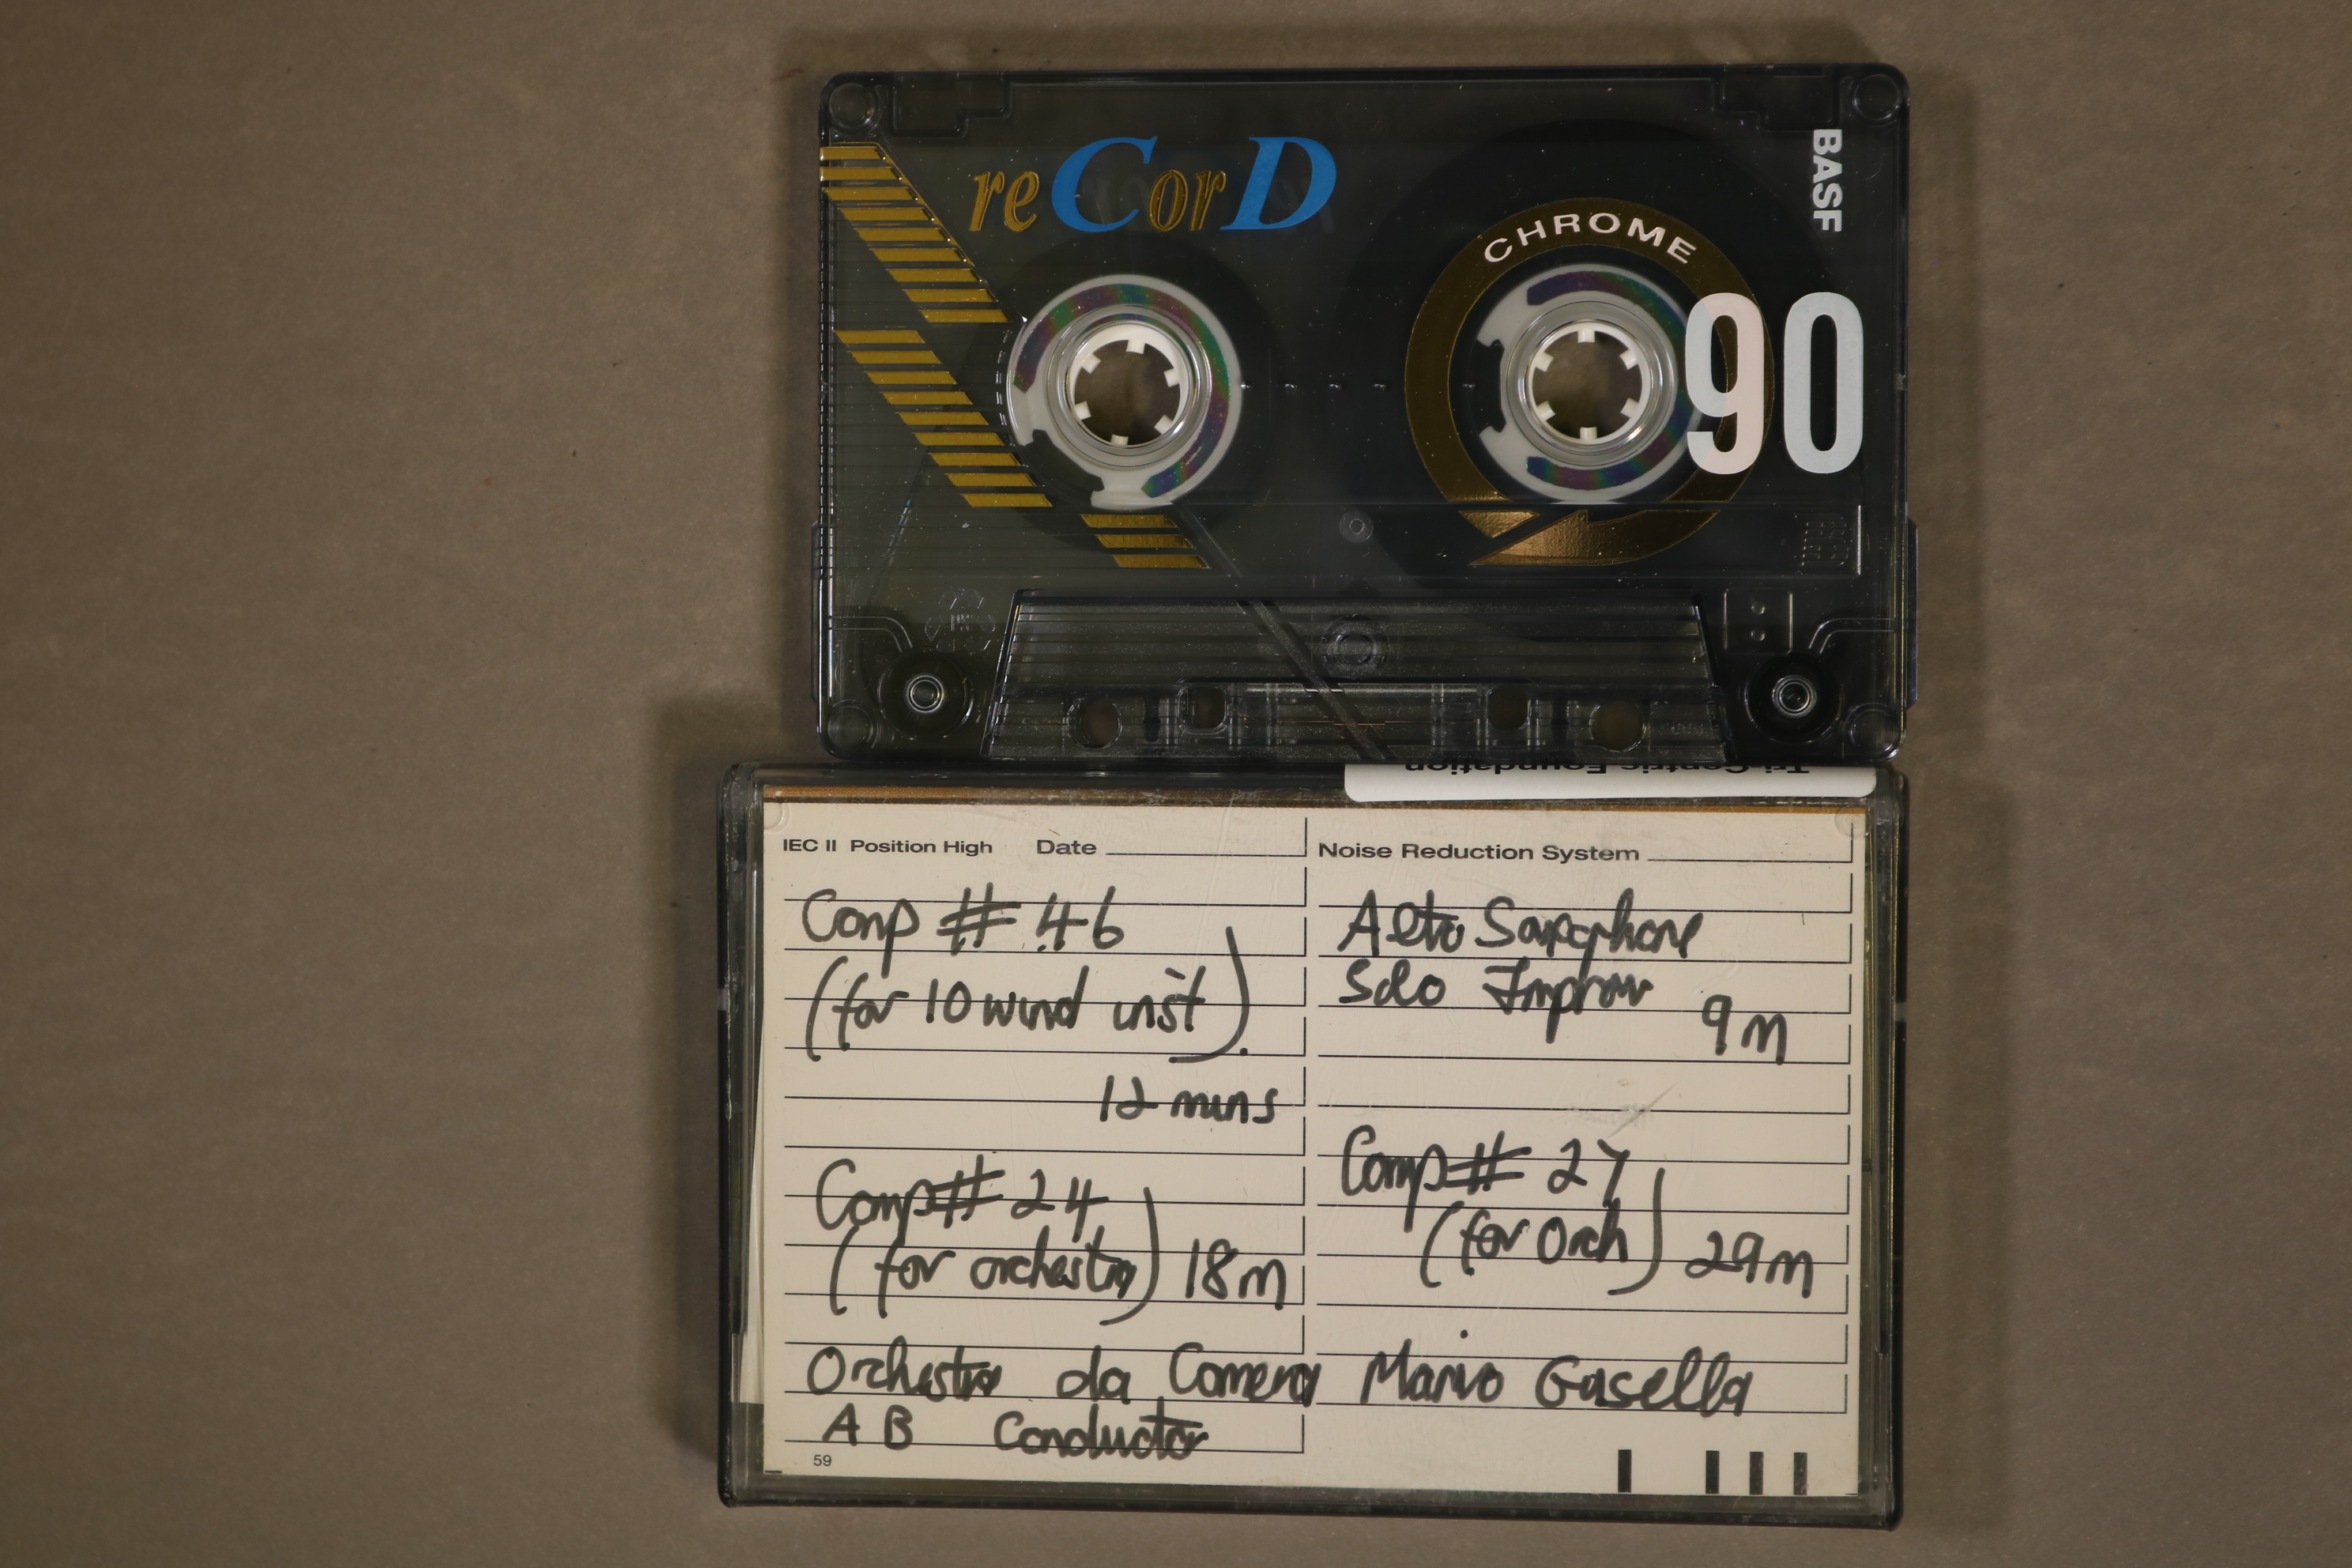 reCorD
BASF
CHROME
90
Tri-Centric Foundation
IEC II Position High Date
Noise Reduction System
Comp # 46
(for 10 wind inst).
12 mins
Comp # 24
(for orchestra) 18m
Alto Saxophone
Solo Improv 9m
Comp # 27
(for Orch) 29m
Orchestra da Camera Mario Gusella
A B Conductor
59